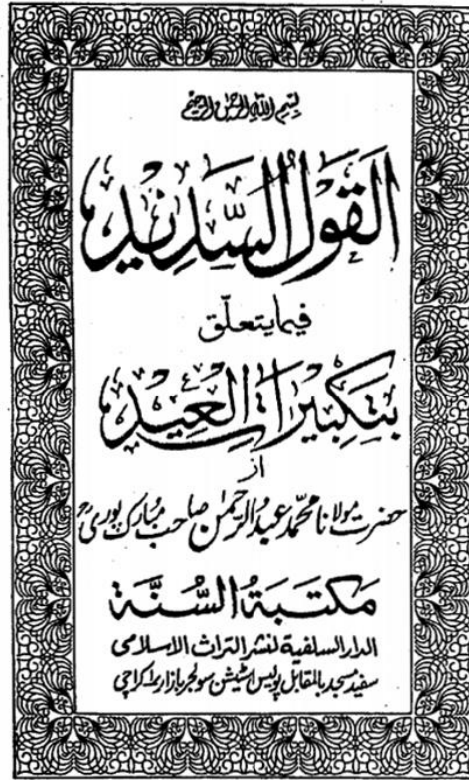 بسم الله الرحمن الرحيم
القول السديد
فيما يتعلق
بتكبيرات العيد
از
حضرت مولانا محمد عبدالرحمن صاحب مبارک پوریؒ
مكتبة السنة
الدار السلفية لنشر التراث الاسلامی
سفید مسجد بالمقابل پولیس اسٹیشن سولجر بازار ۱ کراچی